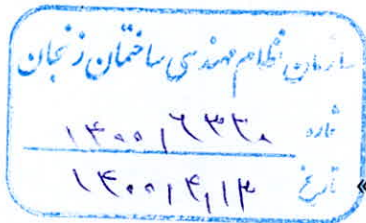 سازمان نظام مهندسی ساختمان زنجان
شماره ۱۴۰۰,۶۳۳۰
تاریخ ۱۴۰۰,۴,۱۳
»